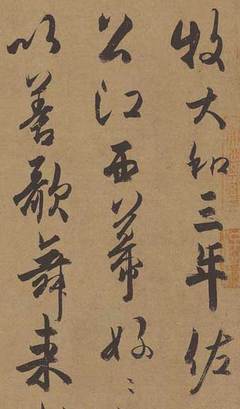 牧大和三年佐
公江西幕好〻
以善歌舞来